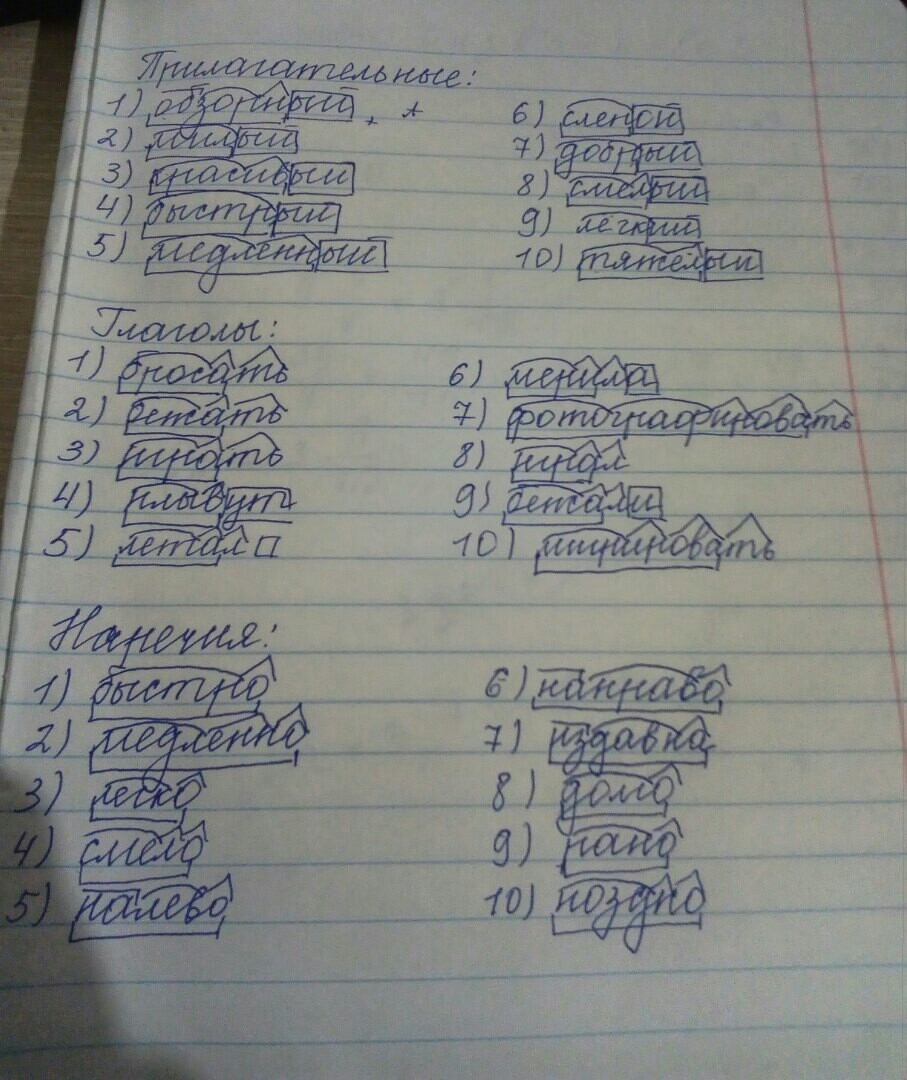 Прилагательные:
1) обзорный
2) милый
3) красивый
4) быстрый
5) медленный
6) слепой
7) добрый
8) смелый
9) легкий
10) тяжелый
Глаголы:
1) бросать
2) бежать
3) играть
4) плывут
5) летал
6) мерила
7) фотографировать
8) играл
9) бежали
10) минировать
Наречия:
1) быстро
2) медленно
3) легко
4) смело
5) налево
6) направо
7) издавна
8) домо
9) рано
10) поздно